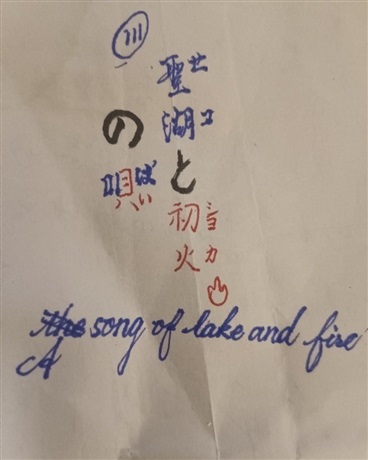 聖湖と初火
せ
コ
カ
の唄
ばい
the song of lake and fire
A